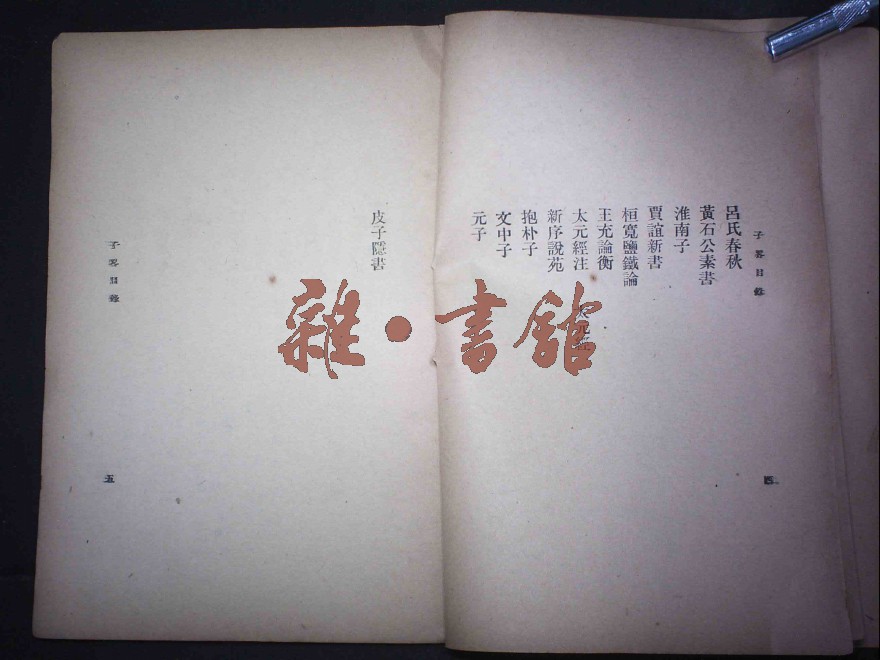 子畧目錄
呂氏春秋
黃石公素書
淮南子
賈誼新書
桓寬鹽鐵論
王充論衡
太元經注
新序說苑
抱朴子
文中子
元子
四
皮子隱書
子畧目錄
五
雜·書館